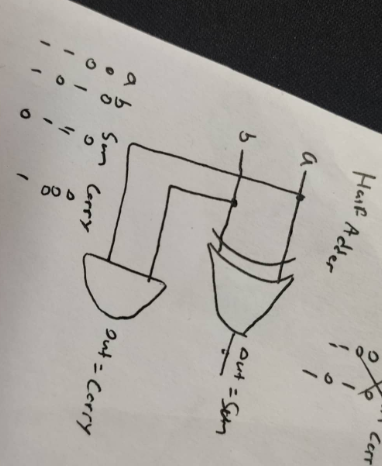 Half Adder
a
b
Out = Sum
Out = Carry
a b Sum Carry
0 0 0 0
0 1 1 0
1 0 1 0
1 1 0 1